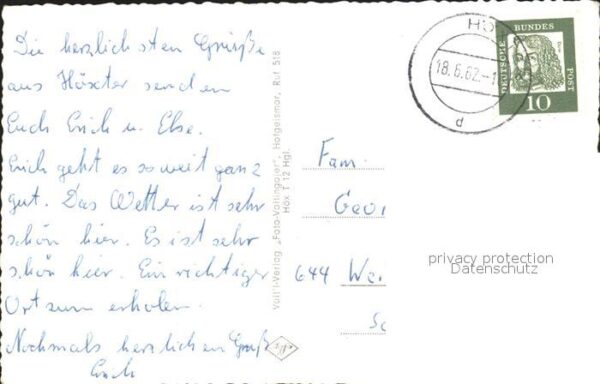 Die herzlichsten Grüße
aus Höxter senden
Euch Erich u. Else.
Erich geht es soweit ganz
gut. Das Wetter ist sehr
schön hier. Es ist sehr
schön hier. Ein richtiger
Ort zum erholen.
Nochmals herzlichen Gruß
Erich
Voit'l-Verlag „Foto-Voitingajer", Hofgeismar, Ruf 518
Höx T 12 Hgl.
HÖ
18.6.62.-1
d
DEUTSCHE BUNDES POST
10
Fam.
Geor
644 We
privacy protection
Datenschutz